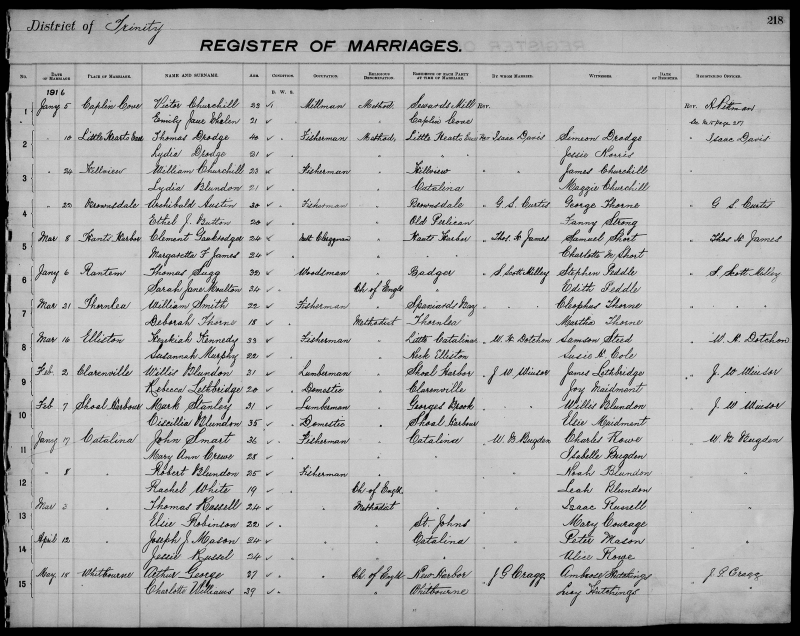 District of Trinity
218
REGISTER OF MARRIAGES.
No. DATE OF MARRIAGE PLACE OF MARRIAGE. NAME AND SURNAME. AGE. CONDITION. OCCUPATION. RELIGIOUS DENOMINATION. RESIDENCE OF EACH PARTY AT TIME OF MARRIAGE. BY WHOM MARRIED. WITNESSES. DATE OF REGISTRY. REGISTERING OFFICER.
1916 B. W. S.
1 Jany 5 Caplin Cove Victor Churchill 23 Millman Method. Sewards Mill REV. REV. A Pitman
Emily Jane Whalen 21 Caplin Cove
2 " 10 Little Hearts Ease Thomas Drodge 40 Fisherman Method. Little Hearts Ease Rev Isaac Davis Simeon Drodge Isaac Davis
Lydia Drodge 21 " " Jessie Norris
3 " 24 Hillview William Churchill 23 Fisherman " Hillview " " James Churchill
Lydia Blundon 21 " Catalina Maggie Churchill
4 " 22 Brownsdale Archibald Austin 30 Fisherman " Brownsdale " G S. Curtis George Thorne G S. Curtis
Ethel J Button 20 " Old Perlican Fanny Strong
5 Mar 8 Hants Harbor Clement 24 Meth Clergyman " Hants Harbor " Thos. H James Samuel Short Thos H James
Margaretta F James 24 " " Charlotte M Short
6 Jany 6 Rantem Thomas Sugg 32 Woodsman " Badger " S Scott Milley Stephen Peddle " S. Scott Milley
Sarah Jane Moulton 24 Ch of Engld " Edith Peddle
7 Mar 21 Thornlea William Smith 22 Fisherman " Spaniards Bay " " Cleophas Thorne "
Deborah Thorne 18 Methodist Thornlea Martha Thorne
8 Mar 16 Elliston Hezekiah Kennedy 33 Fisherman " Little Catalina " W. H Dotchon Samson Steed " W. H. Dotchon
Susannah Murphy 22 " Neck Elliston Susie G. Cole
9 Feb. 2 Clarenville Willis Blundon 21 Lumberman " Shoal Harbor " J W Winsor James Lethbridge " J. W Winsor
Rebecca Lethbridge 20 Domestic " Clarenville Joy Maidment
10 Feb 7 Shoal Harbour Mark Stanley 31 Lumberman " Georges Brook " " Willis Blundon " J. W Winsor
Cissillia Blundon 35 Domestic " Shoal Harbour Elsie Maidment
11 Jany 17 Catalina John Smart 36 Fisherman " Catalina " W. B Bugden Charles Rowe " W. B Bugden
Mary Ann Crewe 28 " " Isabelle Bugden
12 " 8 " Robert Blundon 25 Fisherman " " " Noah Blundon "
Rachel White 19 Ch of Engld " Leah Blundon
13 Mar 3 " Thomas Russell 24 " Methodist " " Isaac Russell "
Elsie Robinson 22 " St. Johns Mary Courage
14 April 12 " Joseph J. Mason 24 " " Catalina " Peter Mason "
Jessie Russel 24 " " Alice Rowe
15 May 18 Whitbourne Arthur George 27 " Ch of Engld New Harbor " J G Cragg Ambrose Hutchings " J. G. Cragg
Charlotte Williams 39 " Whitbourne Lucy Hutchings